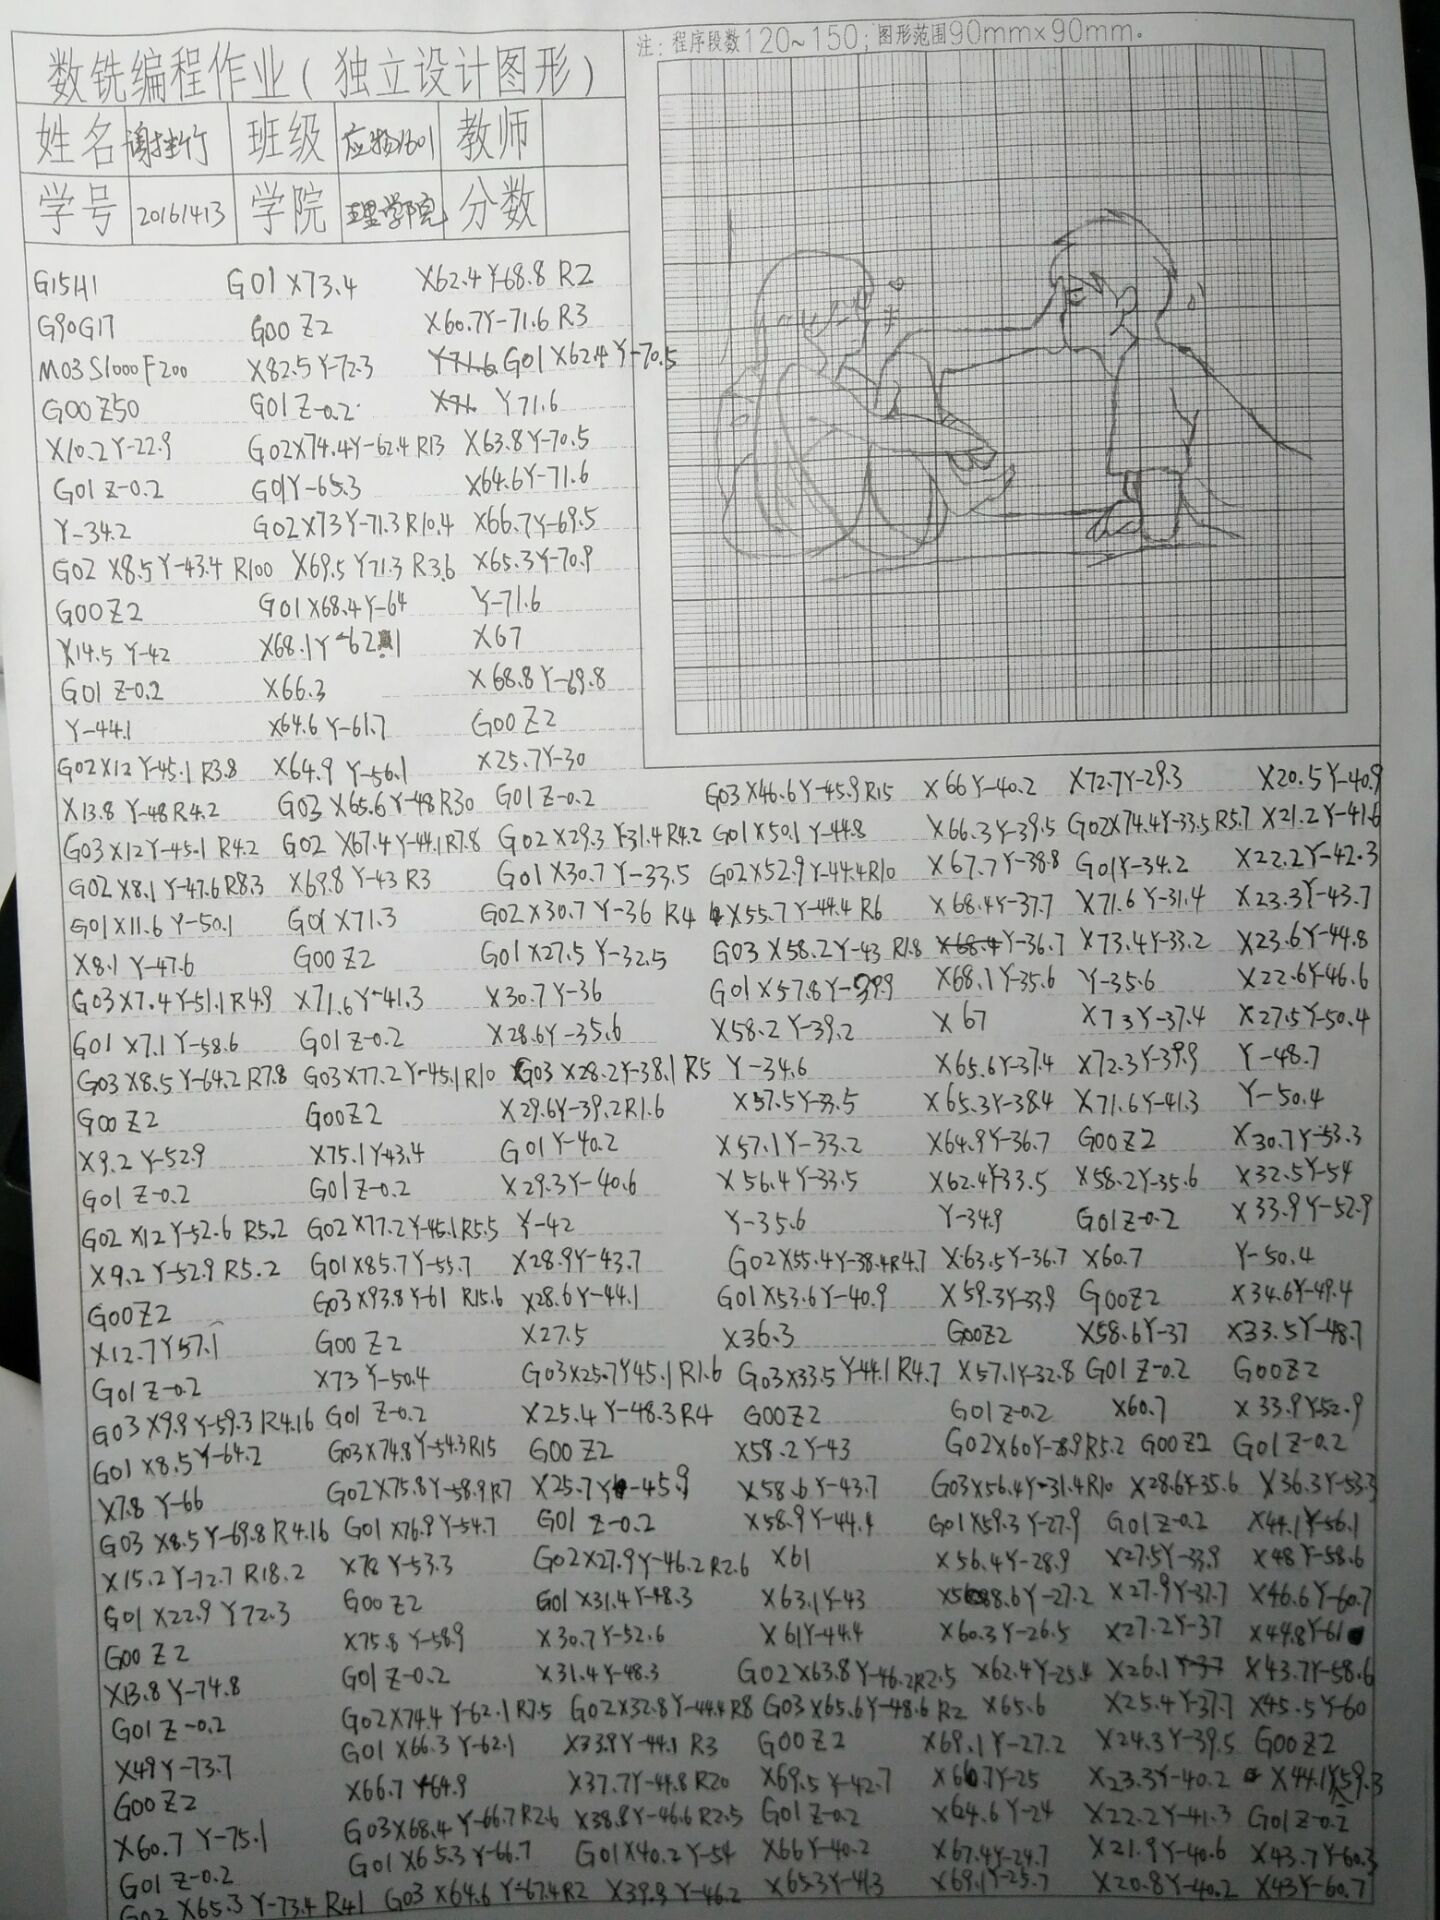 注: 程序段数120~150; 图形范围90mm×90mm。
数铣编程作业(独立设计图形)
姓名 班级 应物1601 教师
学号 20161413 学院 理学院 分数
G15H1
G90G17
M03 S1000 F200
G00 Z50
X10.2 Y-22.9
G01 Z-0.2
Y-34.2
G02 X8.5 Y-43.4 R100
G00 Z2
X14.5 Y-42
G01 Z-0.2
Y-44.1
G02X12 Y-45.1 R3.8
X13.8 Y-48 R4.2
G03 X12 Y-45.1 R4.2
G02 X8.1 Y-47.6 R8.3
G01 X11.6 Y-50.1
X8.1 Y-47.6
G03 X7.4 Y-51.1 R4.9
G01 X7.1 Y-58.6
G03 X8.5 Y-64.2 R7.8
G00 Z2
X9.2 Y-52.9
G01 Z-0.2
G02 X12 Y-52.6 R5.2
X9.2 Y-52.9 R5.2
G00 Z2
X12.7 Y57.1
G01 Z-0.2
G03 X9.9 Y-59.3 R4.16
G01 X8.5 Y-64.2
X7.8 Y-66
G03 X8.5 Y-69.8 R4.16
X15.2 Y-72.7 R18.2
G01 X22.9 Y72.3
G00 Z2
X13.8 Y-74.8
G01 Z-0.2
X49 Y-73.7
G00 Z2
X60.7 Y-75.1
G01 Z-0.2
G02 X65.3 Y-73.4 R41
G01 X73.4
G00 Z2
X82.5 Y-72.3
G01 Z-0.2
G02X74.4Y-62.4 R13
G01Y-65.3
G02 X73 Y-71.3 R10.4
X69.5 Y71.3 R3.6
G01 X68.4 Y-64
X68.1 Y-62.1
X66.3
X64.6 Y-61.7
X64.9 Y-56.1
G03 X65.6 Y-48 R30
G02 X67.4 Y-44.1 R7.8
X69.8 Y-43 R3
G01 X71.3
G00 Z2
X71.6 Y-41.3
G01 Z-0.2
G03 X77.2 Y-45.1 R10
G00 Z2
X75.1 Y43.4
G01 Z-0.2
G02 X77.2 Y-45.1 R5.5
G01 X85.7 Y-55.7
G03 X93.8 Y-61 R15.6
G00 Z2
X73 Y-50.4
G01 Z-0.2
G03 X74.8 Y-54.3 R15
G02 X75.8 Y-58.9 R7
G01 X76.9 Y-54.7
X78 Y-53.3
G00 Z2
X75.8 Y-58.9
G01 Z-0.2
G02 X74.4 Y-62.1 R7.5
G01 X66.3 Y-62.1
X66.7 Y64.9
G03 X68.4 Y-66.7 R2.6
G01 X65.3 Y-66.7
G03 X64.6 Y-67.4 R2
X62.4 Y-68.8 R2
X60.7 Y-71.6 R3
G01 X62.4 Y-70.5
Y71.6
X63.8 Y-70.5
X64.6 Y-71.6
X66.7 Y-69.5
X65.3 Y-70.9
Y-71.6
X67
X68.8 Y-69.8
G00 Z2
X25.7 Y-30
G01 Z-0.2
G02 X29.3 Y-31.4 R4.2
G01 X30.7 Y-33.5
G02 X30.7 Y-36 R4
G01 X27.5 Y-32.5
X30.7 Y-36
X28.6 Y-35.6
G03 X28.2 Y-38.1 R5
X29.6 Y-39.2 R1.6
G01 Y-40.2
X29.3 Y-40.6
Y-42
X28.9 Y-43.7
X28.6 Y-44.1
X27.5
G03 X25.7 Y45.1 R1.6
X25.4 Y-48.3 R4
G00 Z2
X25.7 Y-45.9
G01 Z-0.2
G02 X27.9 Y-46.2 R2.6
G01 X31.4 Y-48.3
X30.7 Y-52.6
X31.4 Y-48.3
G02 X32.8 Y-44.4 R8
X33.9 Y-44.1 R3
X37.7 Y-44.8 R20
X38.8 Y-46.6 R2.5
G01 X40.2 Y-54
X39.9 Y-46.2
G03 X46.6 Y-45.9 R15
G01 X50.1 Y-44.8
G02 X52.9 Y-44.4 R10
X55.7 Y-44.4 R6
G03 X58.2 Y-43 R1.8
G01 X57.8 Y-39.9
X58.2 Y-39.2
Y-34.6
X57.5 Y-33.5
X57.1 Y-33.2
X56.4 Y-33.5
Y-35.6
G02 X55.4 Y-38.4 R4.7
G01 X53.6 Y-40.9
X36.3
G03 X33.5 Y-44.1 R4.7
G00 Z2
X58.2 Y-43
X58.6 Y-43.7
X58.9 Y-44.4
X61
X63.1 Y-43
X61 Y-44.4
G02 X63.8 Y-46.2 R2.5
G03 X65.6 Y-48.6 R2
G00 Z2
X69.5 Y-42.7
G01 Z-0.2
X66 Y-40.2
X65.3 Y-41.3
X66 Y-40.2
X66.3 Y-39.5
X67.7 Y-38.8
X68.4 Y-37.7
Y-36.7
X68.1 Y-35.6
X67
X65.6 Y-37.4
X65.3 Y-38.4
X64.9 Y-36.7
X62.4 Y-33.5
Y-34.9
X63.5 Y-36.7
X59.3 Y-33.9
G00 Z2
X57.1 Y-32.8
G01 Z-0.2
G02 X60 Y-28.9 R5.2
G03 X56.4 Y-31.4 R10
G01 X59.3 Y-27.9
X56.4 Y-28.9
X58.6 Y-27.2
X60.3 Y-26.5
X62.4 Y-25.4
X65.6
X69.1 Y-27.2
X66.7 Y-25
X64.6 Y-24
X67.4 Y-24.7
X69.1 Y-25.7
X72.7 Y-29.3
G02 X74.4 Y-33.5 R5.7
G01 Y-34.2
X71.6 Y-31.4
X73.4 Y-33.2
Y-35.6
X73 Y-37.4
X72.3 Y-39.9
X71.6 Y-41.3
G00 Z2
X58.2 Y-35.6
G01 Z-0.2
X60.7
G00 Z2
X58.6 Y-37
G01 Z-0.2
X60.7
G00 Z2
X28.6 Y-35.6
G01 Z-0.2
X27.5 Y-33.9
X27.9 Y-37.7
X27.2 Y-37
X26.1 Y-37
X25.4 Y-37.7
X24.3 Y-39.5
X23.3 Y-40.2
X22.2 Y-41.3
X21.9 Y-40.6
X20.8 Y-40.2
X20.5 Y-40.9
X21.2 Y-41.6
X22.2 Y-42.3
X23.3 Y-43.7
X23.6 Y-44.8
X22.6 Y-46.6
X27.5 Y-50.4
Y-48.7
Y-50.4
X30.7 Y-53.3
X32.5 Y-54
X33.9 Y-52.9
Y-50.4
X34.6 Y-49.4
X33.5 Y-48.7
G00 Z2
X33.9 Y52.9
G01 Z-0.2
X36.3 Y-53.3
X44.1 Y-56.1
X48 Y-58.6
X46.6 Y-60.7
X44.8 Y-61
X43.7 Y-58.6
X45.5 Y-60
G00 Z2
X44.1 Y59.3
G01 Z-0.2
X43.7 Y-60.3
X43 Y-60.7